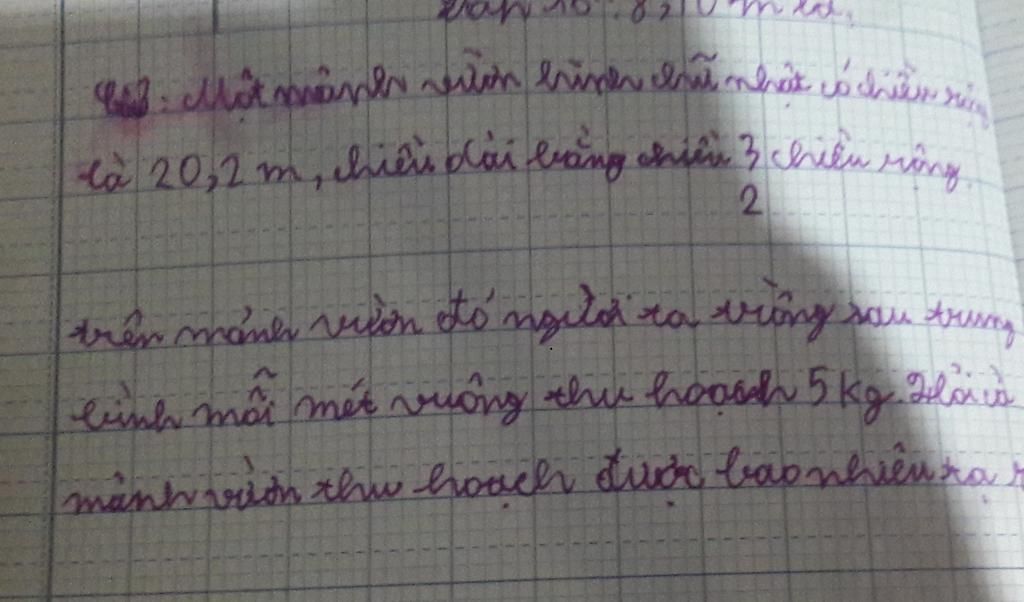 8,10 m là,
Một mảnh vườn hình chữ nhật có chiều rộng
là 20,2 m, chiều dài bằng chiều 3 chiều rộng.
2
trên mảnh vườn đó người ta trồng rau trung
bình mỗi mét vuông thu hoạch 5 kg. Hỏi cả
mảnh vườn thu hoạch được bao nhiêu tạ